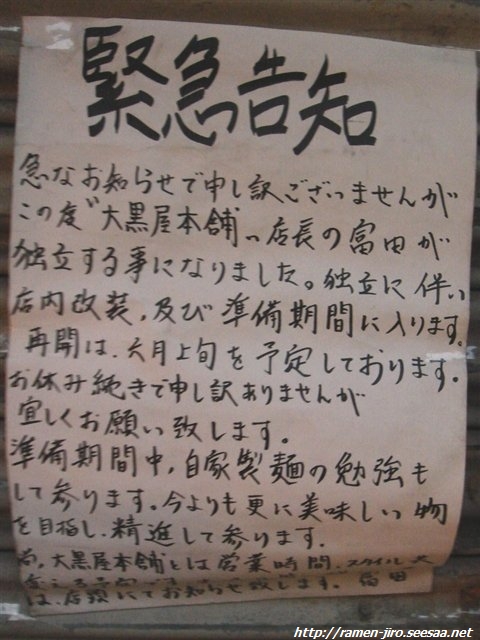 緊急告知
急なお知らせで申し訳ございませんが
この度"大黒屋本舗"店長の富田が
独立する事になりました。独立に伴い
店内改装,及び準備期間に入ります。
再開は、六月上旬を予定しております。
お休み続きで申し訳ありませんが
宜しくお願い致します。
準備期間中,自家製麺の勉強も
して参ります。今よりも更に美味しい物
を目指し、精進して参ります。
尚,大黒屋本舗とは営業時間、スタイル
は、店頭にてお知らせ致します。富田
http://ramen-jiro.seesaa.net